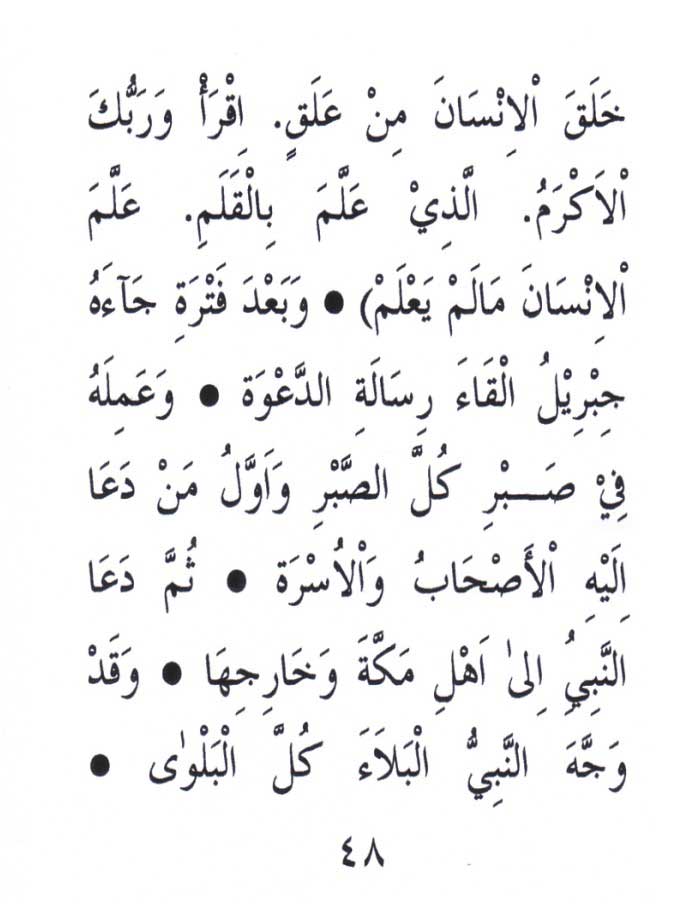 خَلَقَ اْلاِنْسَانَ مِنْ عَلَقٍ. اِقْرَأْ وَرَبُّكَ
اْلاَكْرَمُ. الَّذِيْ عَلَّمَ بِالْقَلَمِ. عَلَّمَ
اْلاِنْسَانَ مَالَمْ يَعْلَمْ) ● وَبَعْدَ فَتْرَةِ جَآءَهُ
جِبْرِيْلُ الْقَاءَ رِسَالَةِ الدَّعْوَة ● وَعَمِلَهُ
فِيْ صَـــبْرِ كُلَّ الصَّبْرِ وَاَوَّلُ مَنْ دَعَا
اِلَيْهِ اْلأَصْحَابُ وَاْلاُسْرَة ● ثُمَّ دَعَا
النَّبِيُ اِلىٰ اَهْلِ مَكَّةَ وَخَارِجِهَا ● وَقَدْ
وَجَّهَ النَّبِيُّ الْبَلاَءَ كُلَّ الْبَلْوٰى ●
٤٨